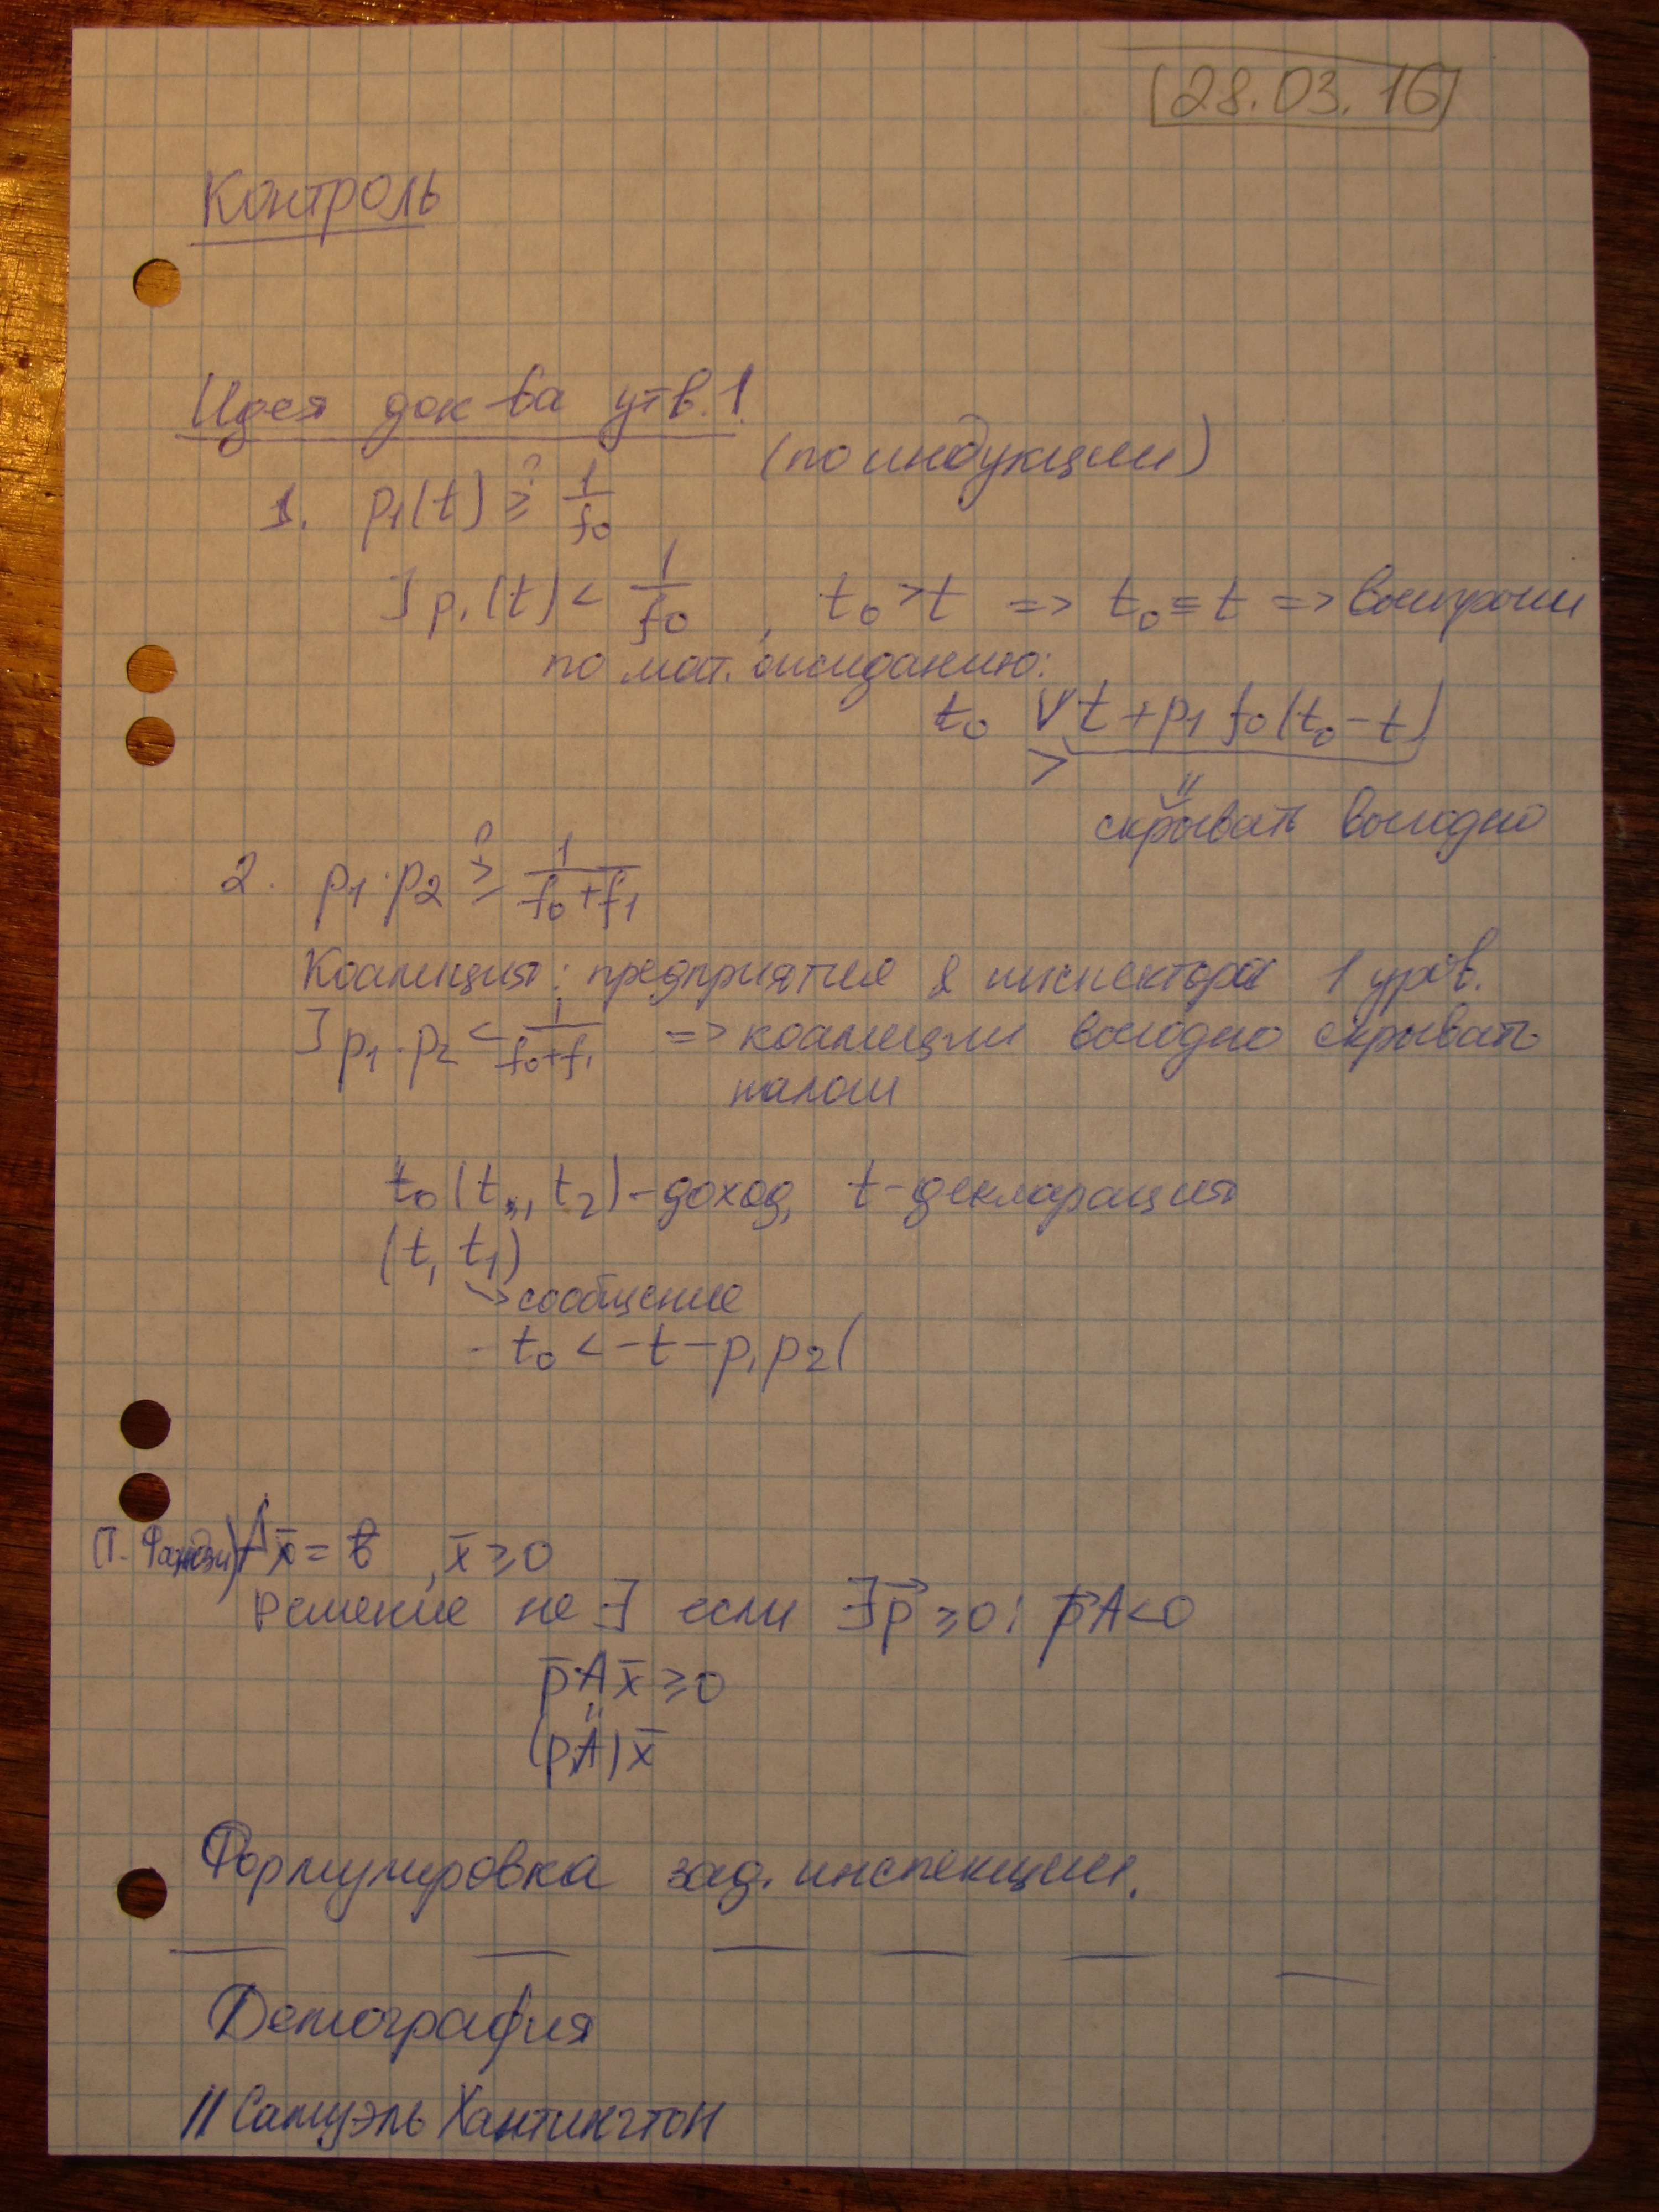 28.03.16
Контроль
Идея док-ва утв. 1.
(по индукции)
1. p₁(t) ≥? 1/f₀
∃ p₁(t) < 1/f₀, t₀ > t => t₀ = t =>
по мат. ожиданию:
t₀ V t + p₁ f₀(t₀ - t)
>
скрывать выгодно
2. p₁·p₂ ≥? 1/(f₀+f₁)
Коалиция: предприятие & инспектора 1 уров.
∃ p₁·p₂ < 1/(f₀+f₁) => коалиции выгодно скрывать
налоги
t₀ (t₁, t₂) - доход, t - декларация
(t, t₁)
↘ сообщение
- t₀ < - t - p₁p₂(
(Т. ) Ax̄ = b̄, x̄ ≥ 0
Решение не ∃ если ∃ p⃗ ≥ 0: p⃗A < 0
p̄Ax̄ ≥ 0
"
(pA)x̄
Формулировка зад. инспекции.
Демография
// Самуэль Хантингтон